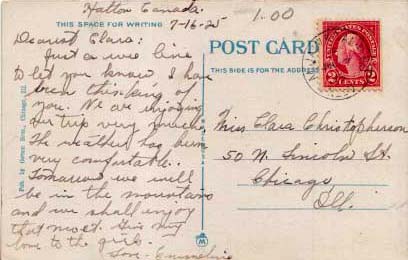 Halton Canada.
7-16-25
1.00
THIS SPACE FOR WRITING
Dearest Clara:
Just a wee line
to let you know I have
been thinking of
you. We are enjoying
our trip very much.
The weather has been
very comfortable.
Tomorrow we will
be in the mountains
and we shall enjoy
that most. Give my
love to the girls.
Love - Emmeline
POST CARD
THIS SIDE IS FOR THE ADDRESS
UNITED STATES POSTAGE
2 CENTS 2
Miss Clara Christopherson
50 N. Lincoln St.
Chicago,
Ill.
Pub. by Gerson Bros., Chicago, Ill.